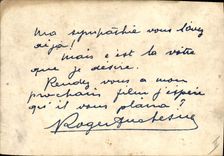 Ma sympathie vous l'avez
déjà !
Mais c'est la votre
que je désire.
Rendez vous a mon
prochain film j'espère
qu'il vous plaira ?
Roger Duchesne